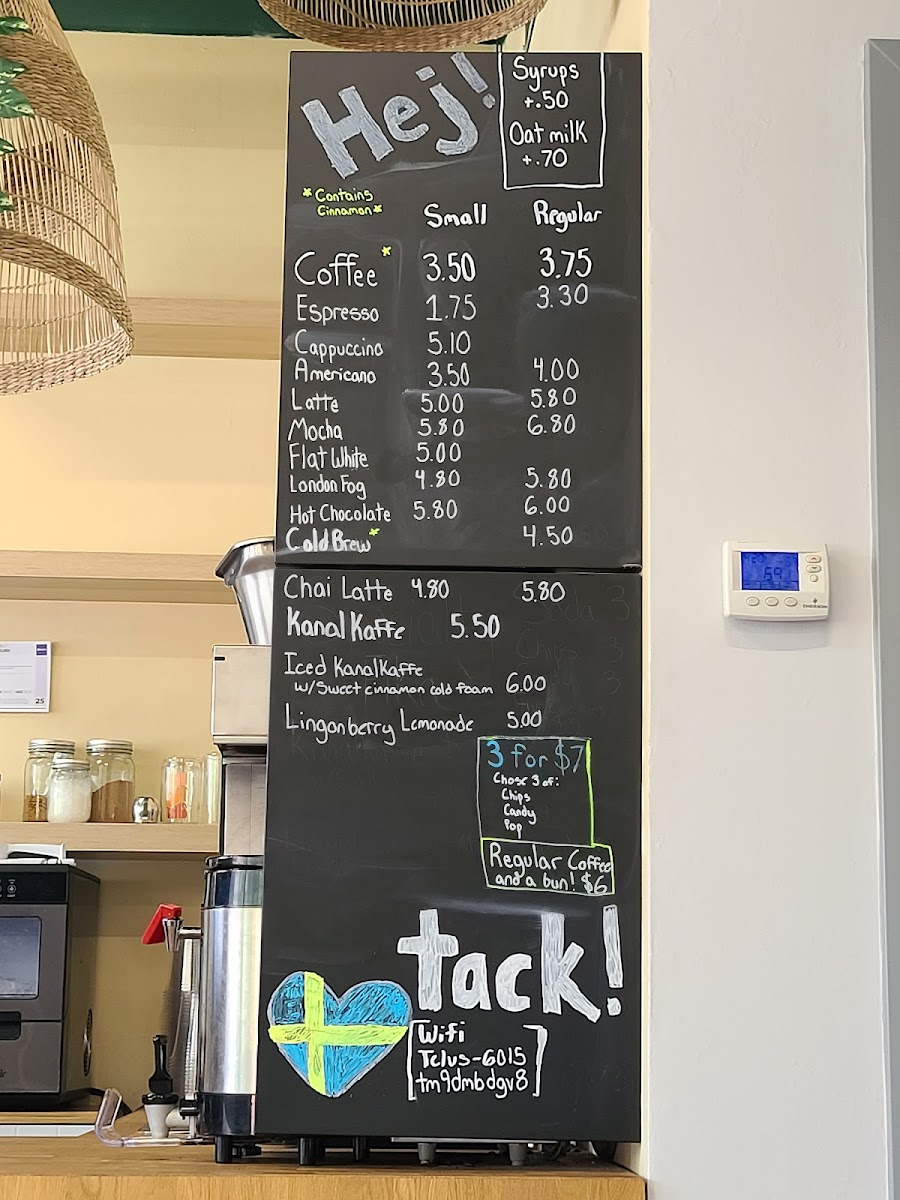 Hej!
Syrups
+.50
Oat milk
+.70
*Contains
Cinnamon*
Small Regular
Coffee* 3.50 3.75
Espresso 1.75 3.30
Cappuccino 5.10
Americano 3.50 4.00
Latte 5.00 5.80
Mocha 5.80 6.80
Flat White 5.00
London Fog 4.80 5.80
Hot Chocolate 5.80 6.00
Cold Brew* 4.50
Chai Latte 4.80 5.80
Kanal Kaffe 5.50
Iced KanalKaffe
w/Sweet cinnamon cold foam 6.00
Lingonberry Lemonade 5.00
3 for $7
Chose 3 of:
Chips
Candy
Pop
Regular Coffee
and a bun! $6
tack!
Wifi
Telus-6015
tm9dmbdgv8
69
EMERSON
25